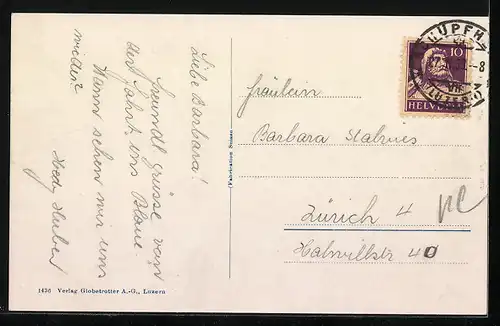 Liebe Barbara!
Freundl. Grüsse von
der Fahrt ins Blaue.
Wann sehen wir uns
wieder?
Hedy Huber
1436 Verlag Globetrotter A.-G., Luzern
(Fabrication Suisse)
HÜPFH
10
HELVETIA
8
Fräulein
Barbara
Zürich 4
40